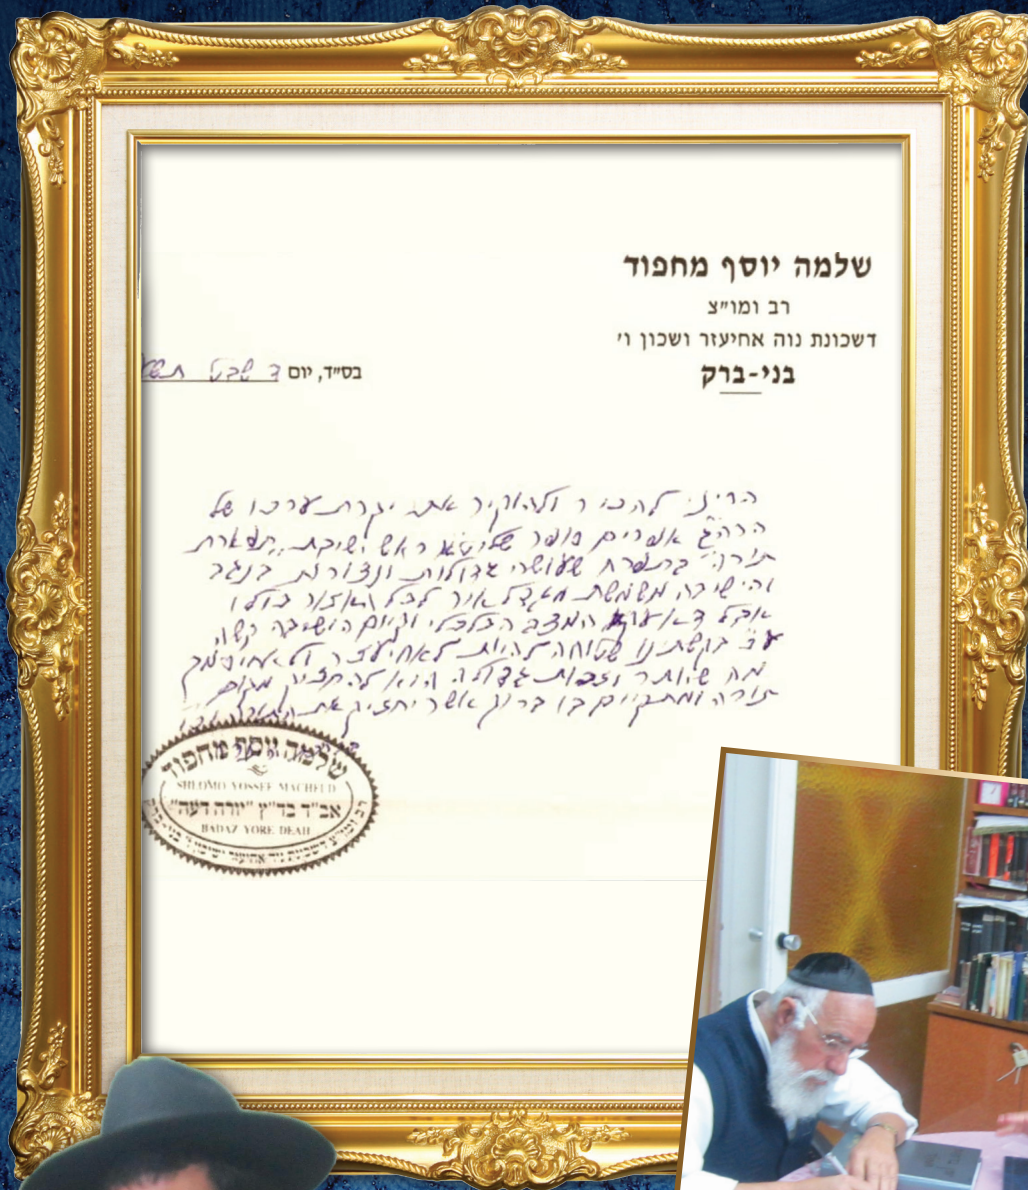 שלמה יוסף מחפוד
רב ומו״צ
דשכונת נוה אחיעזר ושכון ו׳
בני-ברק
בס״ד, יום ד שבט
הריני להכיר ולהוקיר את יקרת ערכו של
הרה״ג אפרים שליט״א ראש ישיבת ,,תפארת
תורה״ בתפרח שעושה גדולות ונצורות בנגב
והישיבה משמשת מגדל אור לכל האזור כולו
אבל המצב הכלכלי וקיום הישיבה קשה
ע״כ בקשתינו שטוחה להיות לאחיעזר ולאחיסמך
מה שיותר וזכות גדולה הוא להחזיק מקום
תורה ומתקיים בו ברוך אשר יחזיק את
שלמה יוסף מחפוד
SHLOMO YOSSEF MACHFUD
אב״ד בד״ץ "יורה דעה"
BADAZ YORE DEAH